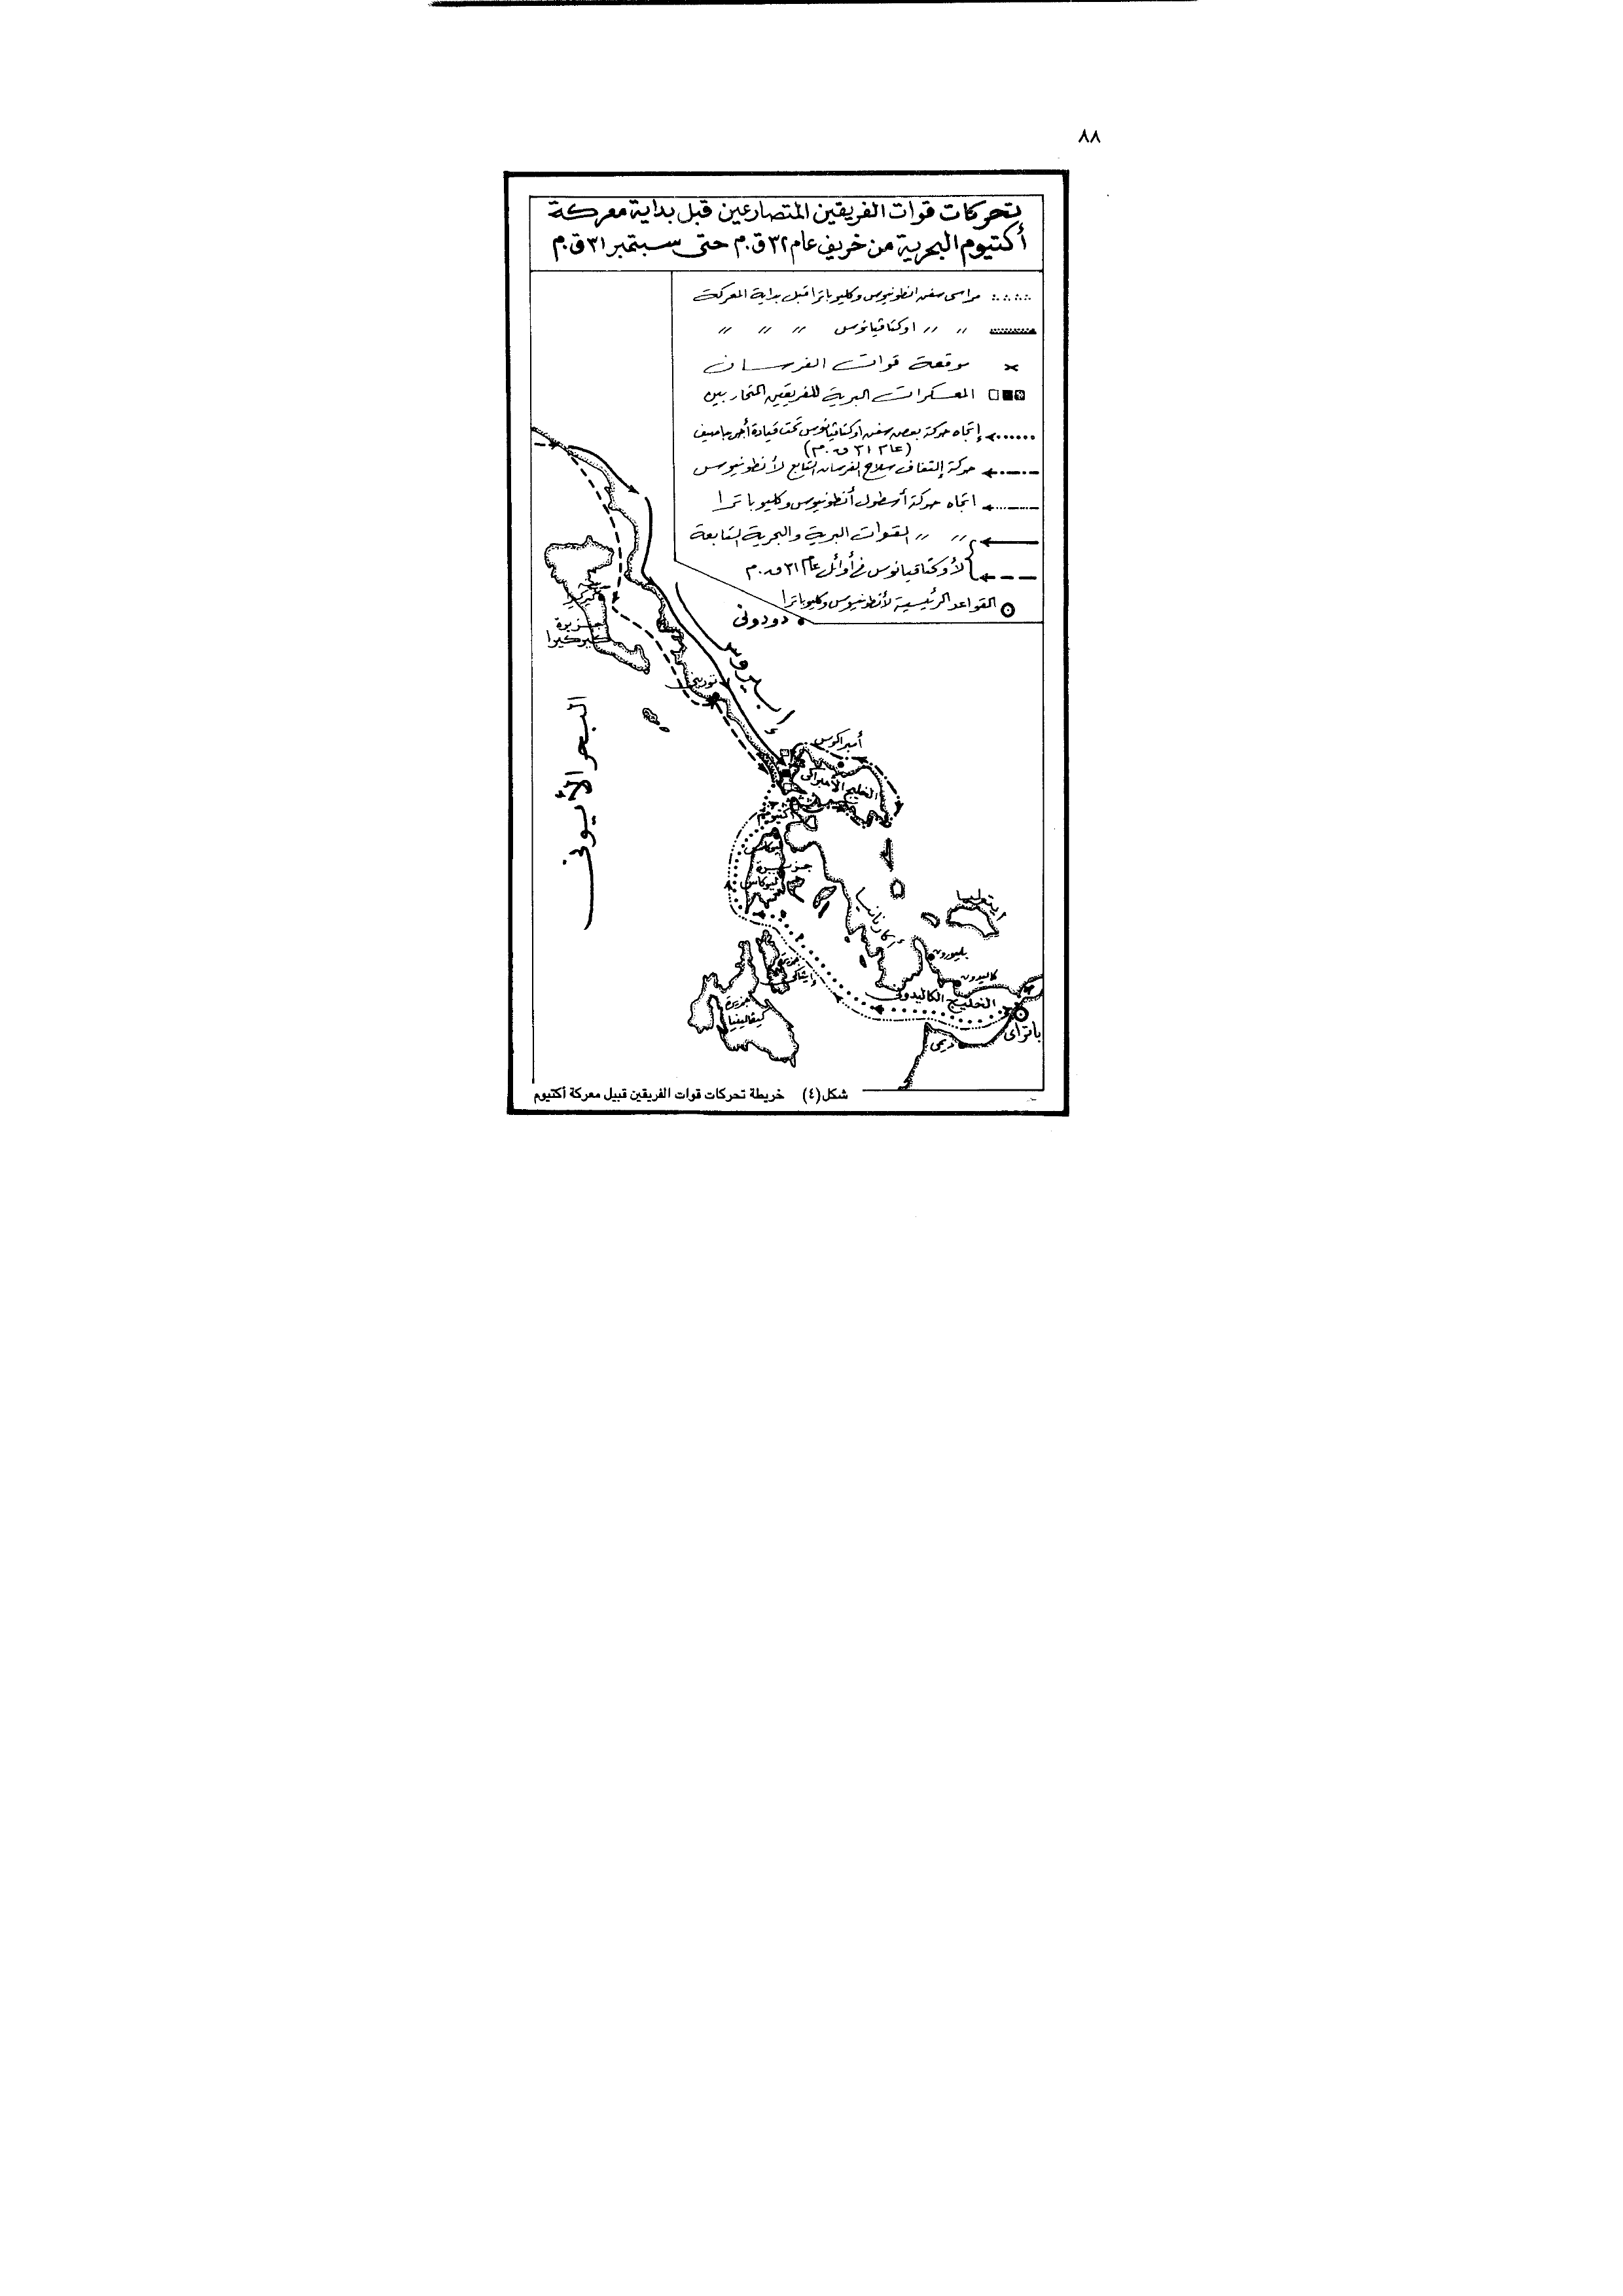 ٨٨
تحركات قوات الفريقين المتصارعين قبل بداية معركة
أكتيوم البحرية من خريف عام ٣٢ ق.م حتى سبتمبر ٣١ ق.م
مراسى سفن انطونيوس وكليوباترا قبل بداية المعركة
〃 〃 اوكتاڤيانوس 〃 〃 〃
موقعة قوات الفرسان
المعسكرات البرية للفريقين المتحاربين
إتجاه حركة بعض سفن اوكتاڤيانوس تحت قيادة أجريبا صيف
(عام ٣١ ق.م)
حركة إلتفاف سلاح الفرسان التابع لأنطونيوس
اتجاه حركة أسطول أنطونيوس وكليوباترا
〃 〃 القوات البرية والبحرية التابعة
لأوكتاڤيانوس فى أوائل عام ٣١ ق.م
القواعد الرئيسية لأنطونيوس وكليوباترا
دودونى
جزيرة
كيركيرا
إبيروس
تورينى
البحر الأيونى
أمبراكوس
الخليج الأمبراكى
أكتيوم
ليوكاس
جزيرة
ليوكاس
أكارنانيا
ايتوليا
بليورون
كاليدون
الخليج الكاليدونى
باتراى
ديمى
جزيرة
إيثاكى
جزيرة
كيفالينيا
شكل (٤) خريطة تحركات قوات الفريقين قبيل معركة أكتيوم